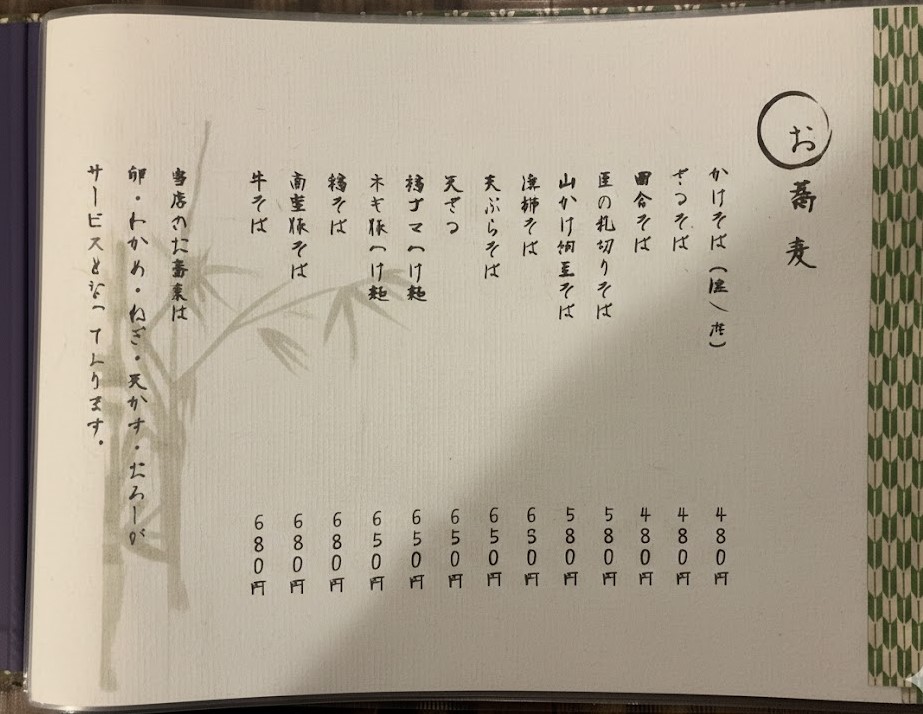 お蕎麦
かけそば（温／冷） 480円
ざるそば 480円
田舎そば 480円
匠の礼切りそば 580円
山かけ納豆そば 580円
そば 650円
天ぷらそば 650円
天ざる 650円
ゴマつけ麺 650円
ネギ豚つけ麺 650円
そば 680円
高座豚そば 680円
牛そば 680円
当店のお蕎麦は
卵・わかめ・ねぎ・天かす・おろしが
サービスとなっております。